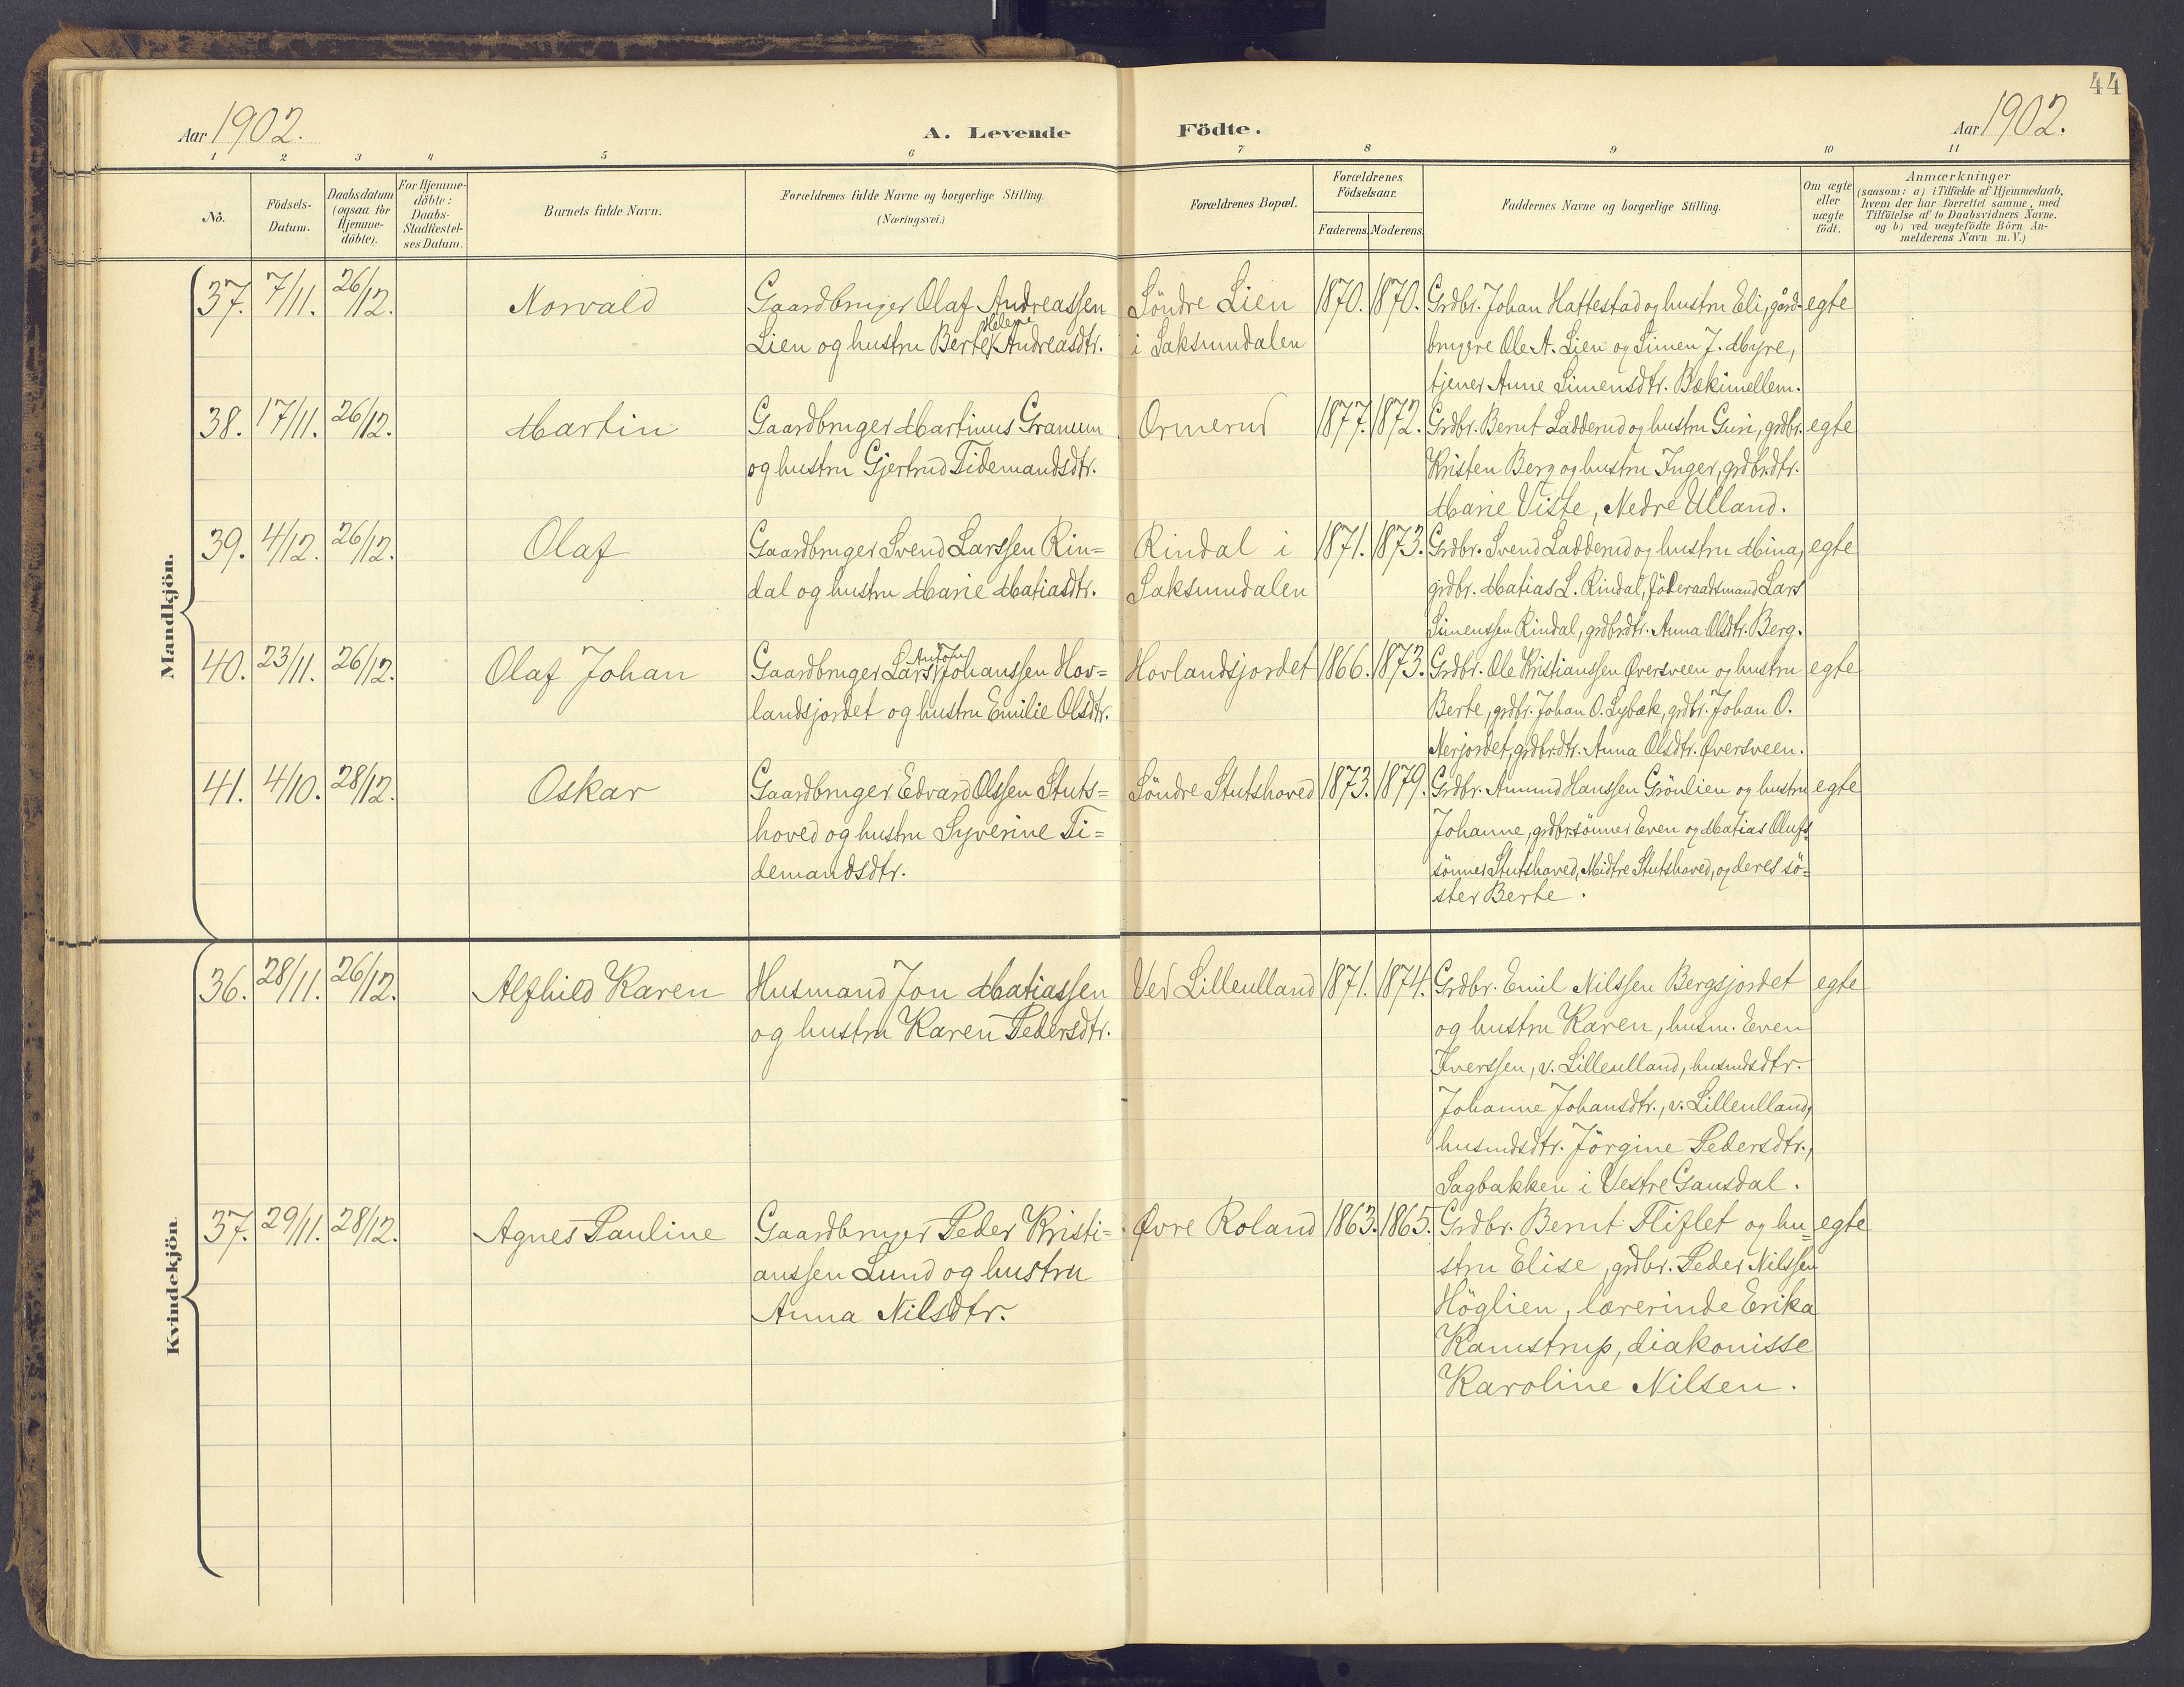 44
Aar 1902.
A. Levende Födte.
Aar 1902.
1 2 3 4 5 6 7 8 9 10 11
No.
Födsels-
Datum.
Daabsdatum
(ogsaa for
Hjemme-
döbte).
For Hjemme-
döbte:
Daabs-
Stadfæstel-
ses Datum.
Barnets fulde Navn.
Forældrenes fulde Navne og borgerlige Stilling.
(Næringsvei.)
Forældrenes Bopæl.
Forældrenes
Födselsaar.
Faderens. Moderens.
Faddernes Navne og borgerlige Stilling.
Om ægte
eller
uægte
födt.
Anmærkninger
(saasom: a) i Tilfælde af Hjemmedaab,
hvem der har forrettet samme, med
Tilföielse af to Daabsvidners Navne.
og b) ved uægtefödte Börn An-
melderens Navn m. V.)
Mandkjön.
37. 7/11. 26/12. Norvald Gaardbruger Olaf Andreassen Söndre Lien 1870. 1870. Grdbr. Johan Hattestad og hustru Eli, gård- egte
Helene
Lien og hustru Berte Andreasdtr. i Saksumdalen brugere Ole A. Lien og Simen J. Myre,
tjener Anne Simensdtr. Bækimellem.
38. 17/11. 26/12. Martin Gaardbruger Martinus Granum Ormerud 1877. 1872. Grdbr. Bernt Ladderud og hustru Guri, grdbr. egte
og hustru Gjertrud Tidemandsdtr. Kristen Berg og hustru Inger, grdbr.dtr.
Marie Viste, Nedre Ulland.
39. 4/12. 26/12. Olaf Gaardbruger Svend Larssen Rin= Rindal i 1871. 1873. Grdbr. Svend Ladderud og hustru Mina, egte
dal og hustru Marie Matiasdtr. Saksumdalen grdbr. Matias L. Rindal, föderaadsmand Lars
Simenssen Rindal, grdbr.dtr. Anna Olsdtr. Berg.
Anton
40. 23/11. 26/12. Olaf Johan Gaardbruger Lars Johanssen Hov= Hovlandsjordet 1866. 1873. Grdbr. Ole Kristianssen Øversveen og hustru egte
landsjordet og hustru Emilie Olsdtr. Berte, grdbr. Johan O. Lybæk, grdbr. Johan O.
Nerjordet, grdbr.dtr. Anna Olsdtr. Øversveen.
41. 4/10. 28/12. Oskar Gaardbruger Edvard Olssen Stuts= Söndre Stutshoved 1873. 1879. Grdbr. Amund Hanssen Grönlien og hustru egte
hoved og hustru Syverine Ti= Johanne, grdbr.sönner Even og Matias Olufs-
demandsdtr. sönner Stutshoved, Midtre Stutshoved, og deres sö=
ster Berte.
Kvindekjön
36. 28/11. 26/12. Alfhild Karen Husmand Jon Matiassen Ved Lilleulland 1871. 1874. Grdbr. Emil Nilssen Bergsjordet egte
og hustru Karen Pedersdtr. og hustru Karen, husm. Even
Iverssen, v. Lilleulland, husmdsdtr.
Johanne Johansdtr., v. Lilleulland,
husmdsdtr. Jörgine Pedersdtr.,
Sagbakken i Vestre Gausdal.
37. 29/11. 28/12. Agnes Pauline Gaardbruger Peder Kristi= Øvre Roland 1863. 1865. Grdbr. Bernt Fliflet og hu= egte
anssen Lund og hustru stru Elise, grdbr. Peder Nilssen
Anna Nilsdtr. Höglien, lærerinde Erika
Kamstrup, diakonisse
Karoline Nilsen.